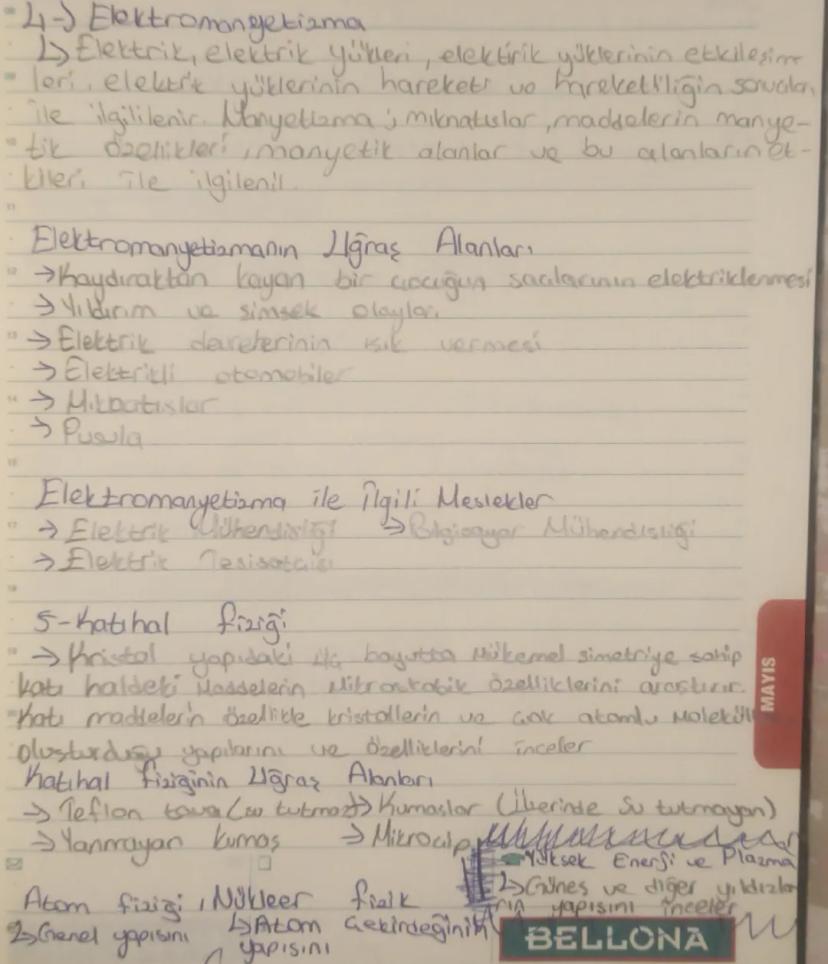 4-) Elektromanyetizma
↳ Elektrik, elektrik yükleri, elektirik yüklerinin etkileşim
leri, elektrik yüklerinin hareketi ve hareketliliğin sonuçları
ile ilgililenir. Manyetizma ; mıknatıslar, maddelerin manye-
tik özellikleri, manyetik alanlar ve bu alanların et-
kileri ile ilgilenil.
Elektromanyetizmanın Uğraş Alanları
→ Kaydıraktan kayan bir çocuğun saçlarının elektriklenmesi
→ Yıldırım ve şimşek olayları
→ Elektrik devrelerinin ışık vermesi
→ Elektrikli otomobiller
→ Mıknatıslar
→ Pusula
Elektromanyetizma ile ilgili Meslekler
→ Elektrik Mühendisliği → Bilgisayar Mühendisliği
→ Elektrik Tesisatçısı
5-Katıhal fiziği
→ Kristal yapıdaki boyutta Mükemel simetriye sahip
katı haldeki Maddelerin Mikroskobik özelliklerini araştırır.
Katı maddelerin özelikle kristallerin ve çok atomlu Molekül
oluşturduğu yapılarını ve özelliklerini inceler
Katıhal fiziğinin Uğraş Alanları
→ Teflon tava (su tutmaz) → Kumaşlar (Üzerinde Su tutmayan)
→ Yanmayan kumaş → Mikroçip
Yüksek Enerji ve Plazma
↳ Güneş ve diğer yıldızla
rın yapısını inceler
Atom fiziği, Nükleer fizik
↳ Genel yapısını ↳ Atom Çekirdeğinin
yapısını
MAYIS
BELLONA